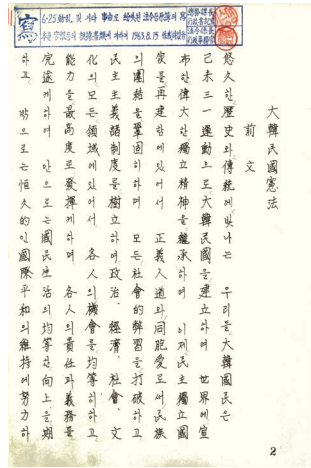 寫
6·25動乱, 및 기타 事由로
1963.8.15
大韓民國憲法
前文
悠久한歷史와傳統에빛나는 우리들大韓國民은
己未三一運動으로大韓民國을建立하여 世界에宣
布한偉大한獨立精神을繼承하여 이제民主獨立國
家를再建함에있어서 正義人道와同胞愛로써民族
의團結을鞏固히하며 모든社會的弊習을打破하고
民主主義諸制度를樹立하여政治, 經濟, 社會, 文
化의모든領域에있어서 各人의機會를均等히하고
能力을最高度로發揮케하며 各人의責任과義務를
完遂케하여 안으로는國民生活의均等한向上을期
하고 밖으로는恒久的인國際平和의維持에努力하
2